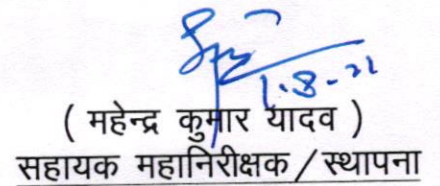 1.8-22
( महेन्द्र कुमार यादव )
सहायक महानिरीक्षक/स्थापना